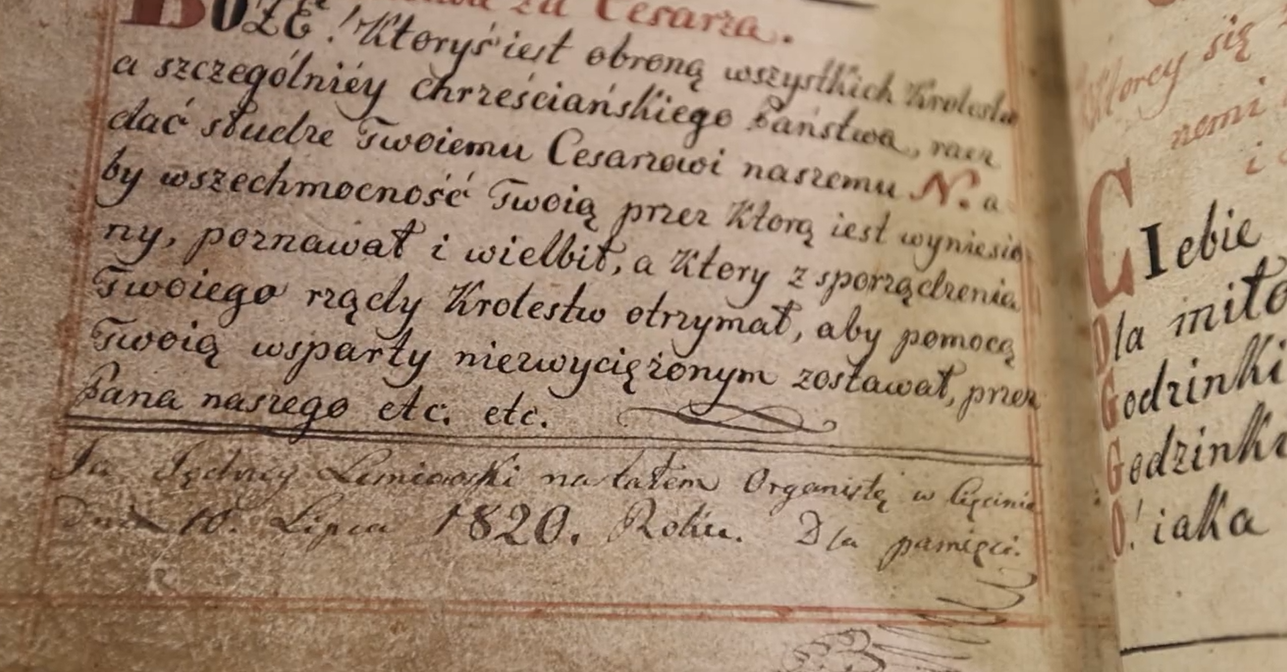 za Cesarza.
BOZE! Ktoryś iest obroną wszystkich Krolestw
a szczególniéy chrześciańskiego Państwa, racz
dać słudze Twoiemu Cesarzowi naszemu N. a
by wszechmocność Twoią przez Ktorą iest wyniesio
ny, poznawał i wielbił, a Ktory z sporządzenia
Twoiego rządy Krolestw otrzymał, aby pomocą
Twoią wsparty niezwyciężonym zostawał, przez
Pana naszego etc. etc.
Ja Jędrzey nastałem Organistą w
Dnia 10. Lipca 1820. Roku. Dla pamięci.
Ktorcy się
nemi
i
CIebie
Dla miło
Godzinki
Godzink
O! iaka